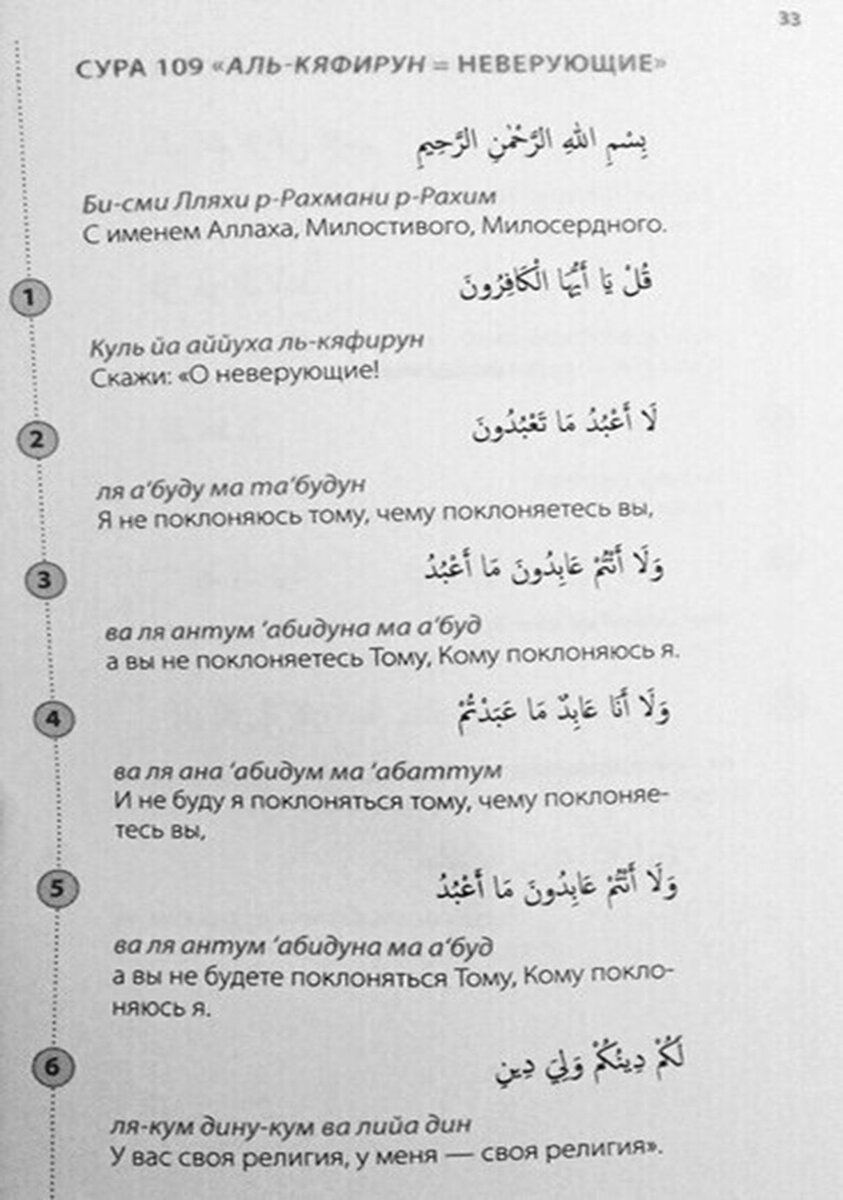 33
СУРА 109 «АЛЬ-КЯФИРУН = НЕВЕРУЮЩИЕ»
بِسْمِ اللهِ الرَّحْمٰنِ الرَّحِيمِ
Би-сми Лляхи р-Рахмани р-Рахим
С именем Аллаха, Милостивого, Милосердного.
1
قُلْ يَا أَيُّهَا الْكَافِرُونَ
Куль йа аййуха ль-кяфирун
Скажи: «О неверующие!
2
لَا أَعْبُدُ مَا تَعْبُدُونَ
ля а‘буду ма та‘будун
Я не поклоняюсь тому, чему поклоняетесь вы,
3
وَلَا أَنْتُمْ عَابِدُونَ مَا أَعْبُدُ
ва ля антум ‘абидуна ма а‘буд
а вы не поклоняетесь Тому, Кому поклоняюсь я.
4
وَلَا أَنَا عَابِدٌ مَا عَبَدْتُمْ
ва ля ана ‘абидум ма ‘абаттум
И не буду я поклоняться тому, чему поклоняе-
тесь вы,
5
وَلَا أَنْتُمْ عَابِدُونَ مَا أَعْبُدُ
ва ля антум ‘абидуна ма а‘буд
а вы не будете поклоняться Тому, Кому покло-
няюсь я.
6
لَكُمْ دِينُكُمْ وَلِيَ دِينِ
ля-кум дину-кум ва лийа дин
У вас своя религия, у меня — своя религия».